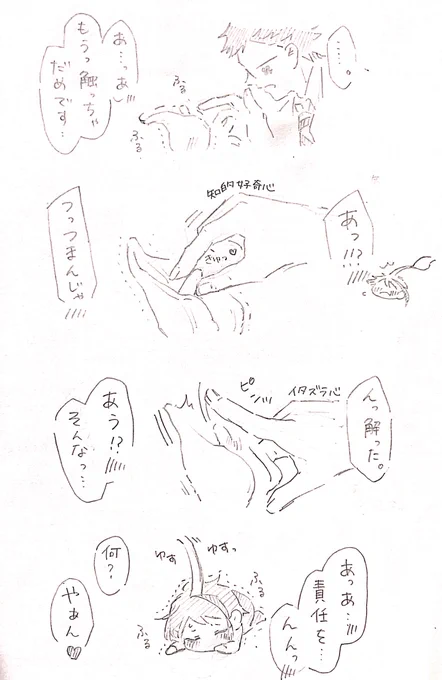 ……。
あ…っあ
もうっ触っちゃ
だめです…
ふる
ふる
知的好奇心
あっ!!?
きゅっ♥
つっつまんじゃ
イタズラ心
んっ解った。
ピンッ
あう!?
そんなっ…
あっあ…
責任を…
んんっ
ゆすっ
ゆす
ふる
ふる
何?
やぁん♥